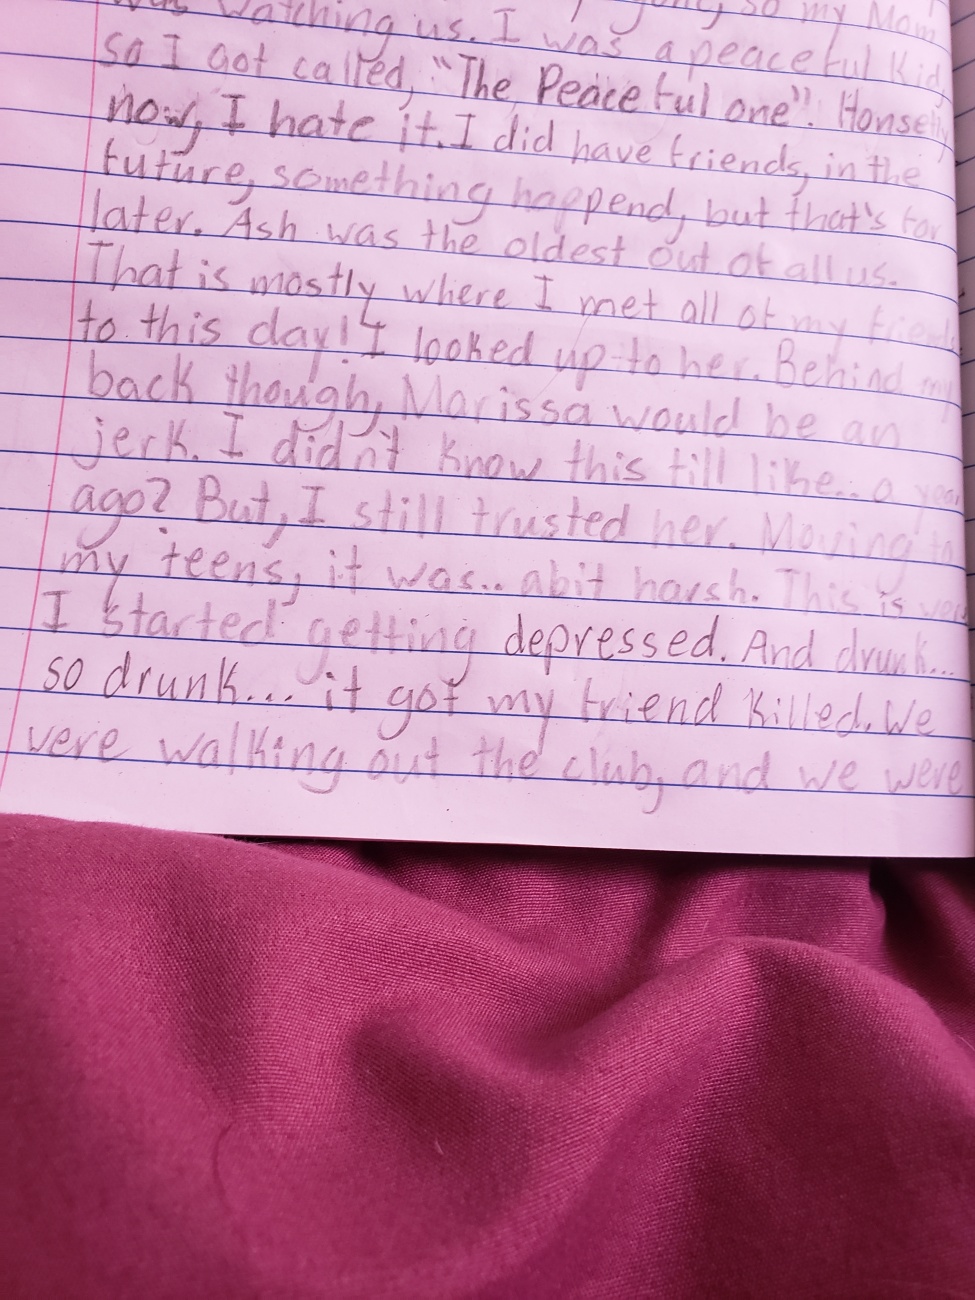 was watching us. I young, so my Mom
so I got called, "The Peaceful one"! Honsetly
now, I hate it. I did have friends, in the
future, something happend, but that's for
later. Ash was the oldest out of all us.
That is mostly where I met all of my friends
to this day! I looked up to her. Behind my
back though, Marissa would be an
jerk. I didn't know this till like.. a year
ago? But, I still trusted her. Moving to
my teens, it was.. abit harsh. This is
I started getting depressed. And drunk...
so drunk... it got my friend killed. We
were walking out the club, and we were